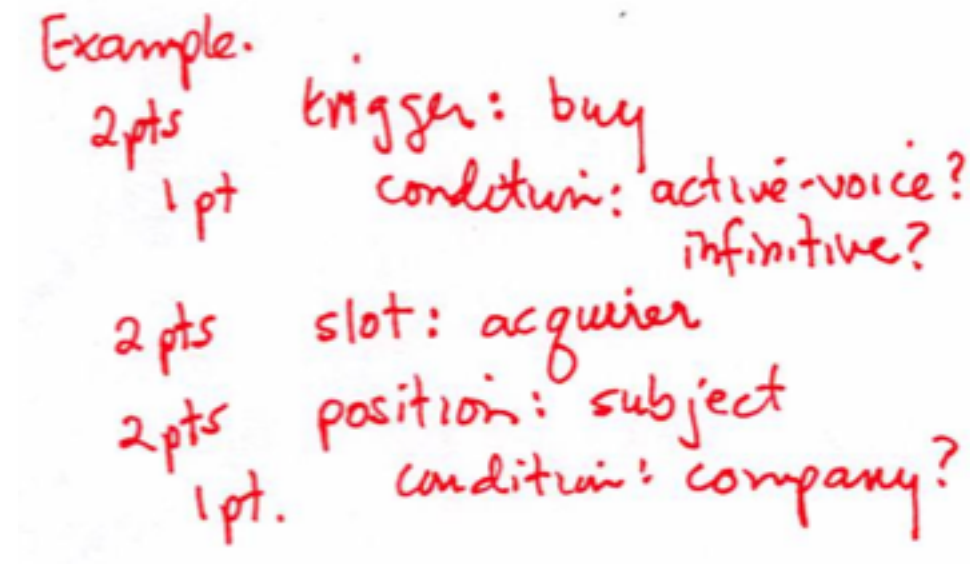 Example.
2pts trigger: buy
1 pt condition: active-voice?
infinitive?
2 pts slot: acquirer
2pts position: subject
1pt. condition: company?